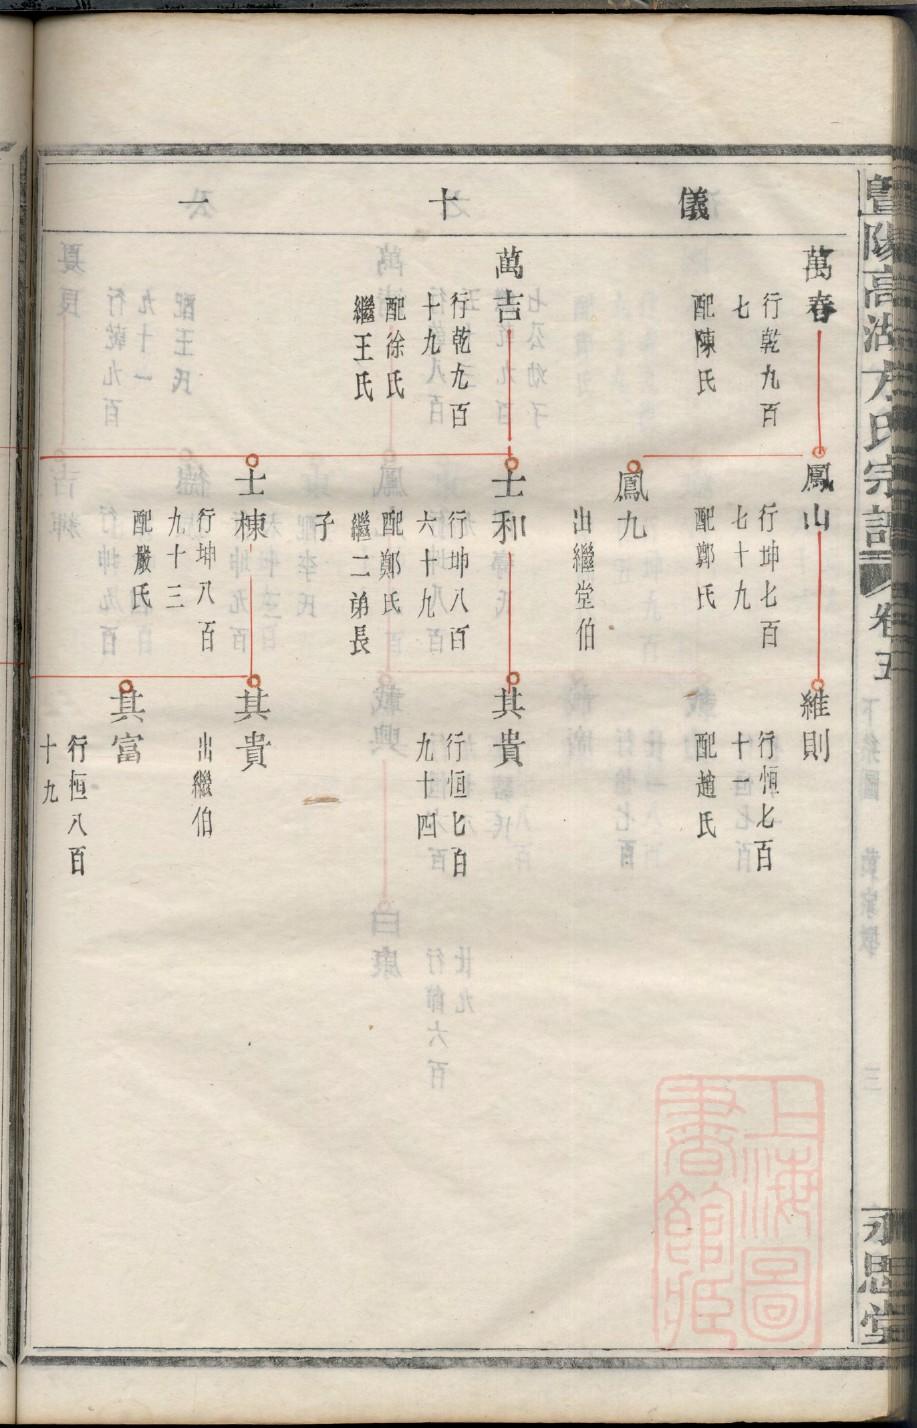 暨陽高湖方氏宗譜
卷五
永思堂
儀十一
萬春
行乾九百
七
配陳氏
鳳山
行坤七百
七十九
配鄭氏
維則
行恒七百
十一
配趙氏
鳳九
出繼堂伯
萬吉
行乾九百
十九
配徐氏
繼王氏
士和
行坤八百
六十九
配鄭氏
繼二弟長
子
其貴
行恒七百
九十四
士棟
行坤八百
九十三
配嚴氏
其貴
出繼伯
其富
行恒八百
十九
上海圖
書館藏